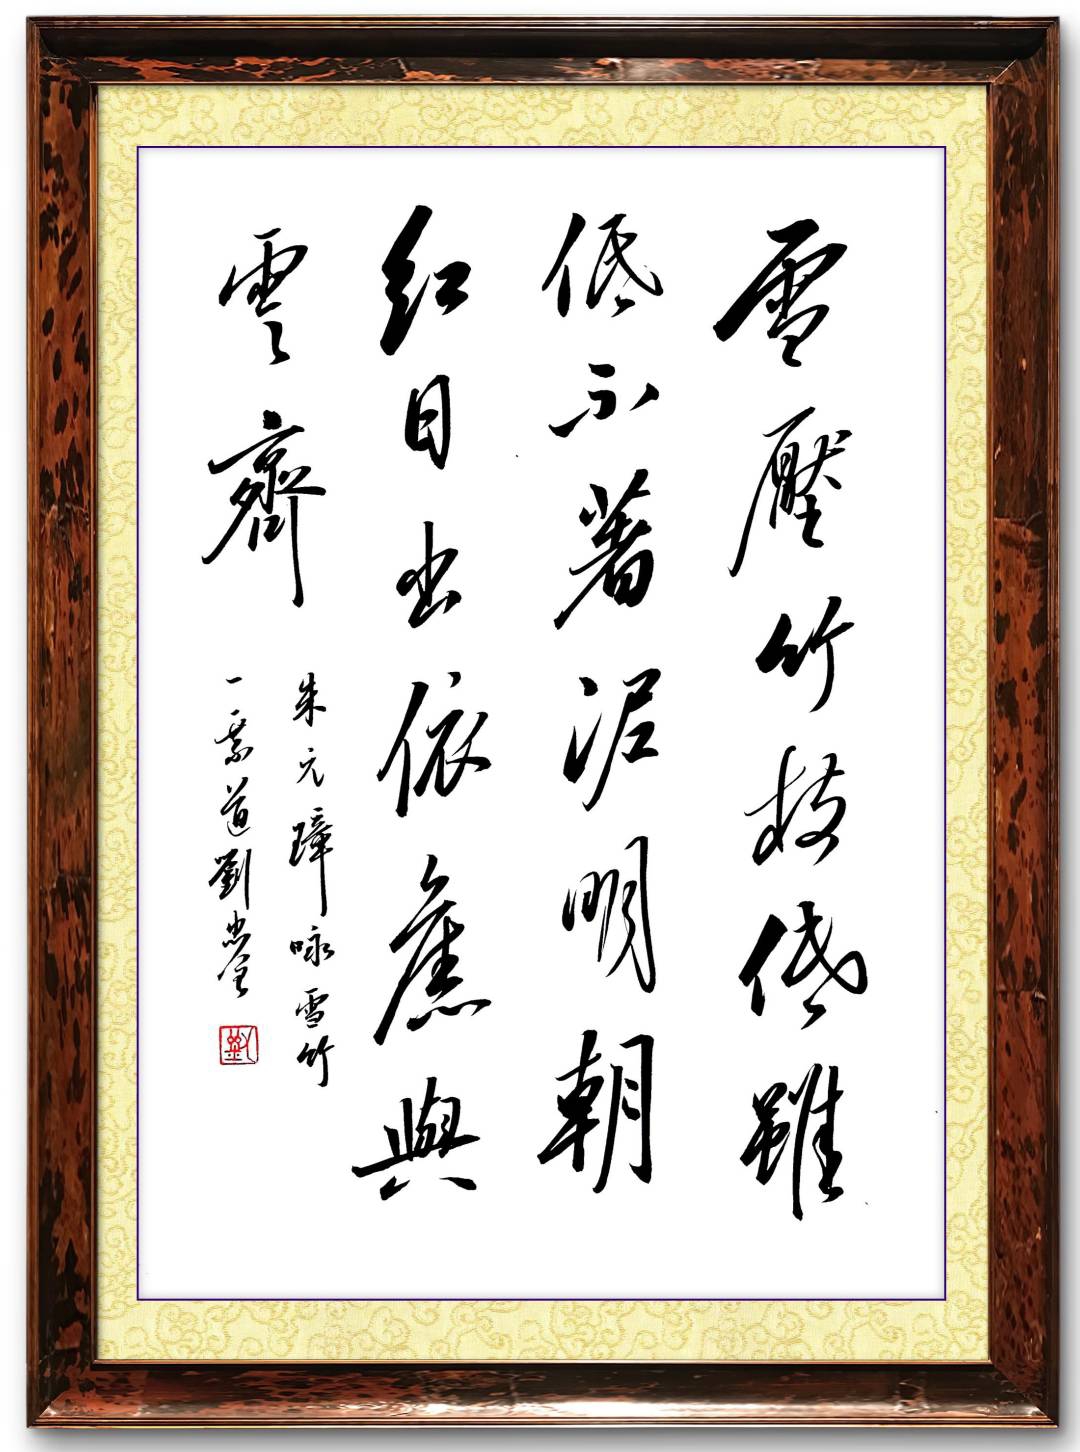 雪壓竹枝低雖
低不著泥明朝
紅日出依舊與
雲齊
朱元璋咏雪竹
一業道劉忠全
劉